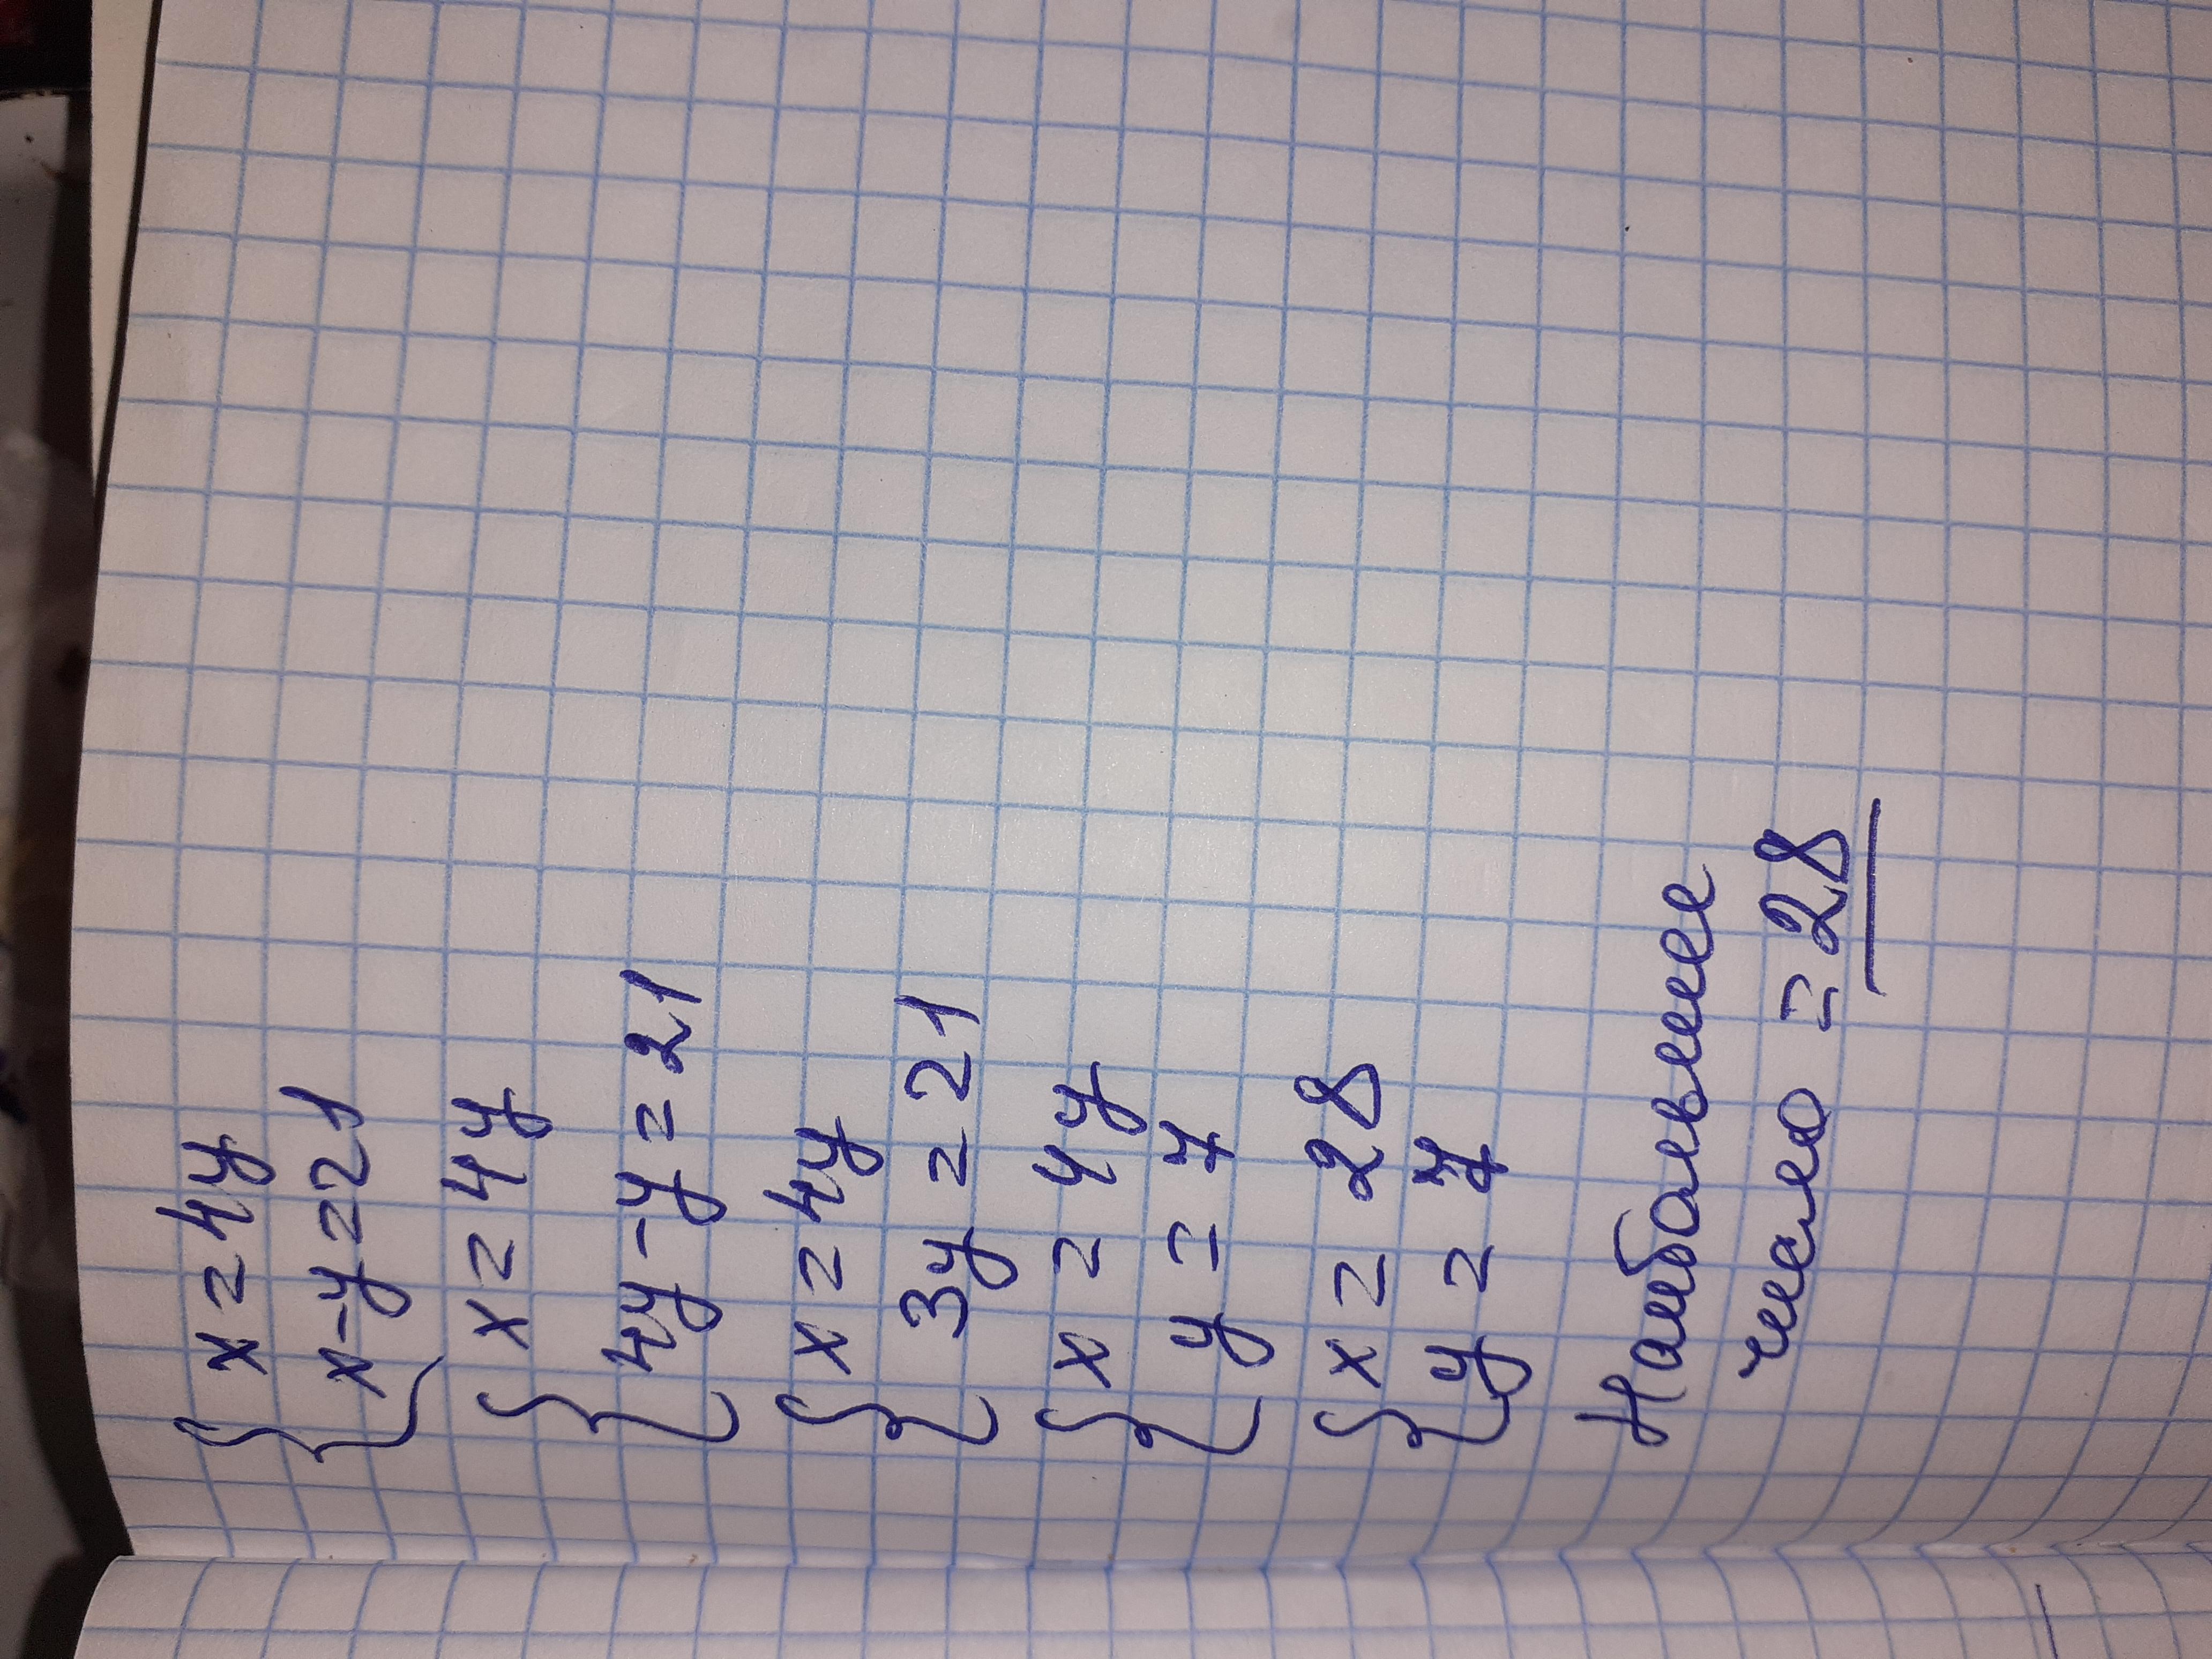 x = 4y
x - y = 21
x = 4y
4y - y = 21
x = 4y
3y = 21
x = 4y
y = 7
x = 28
y = 7
Наибольшее
число = 28